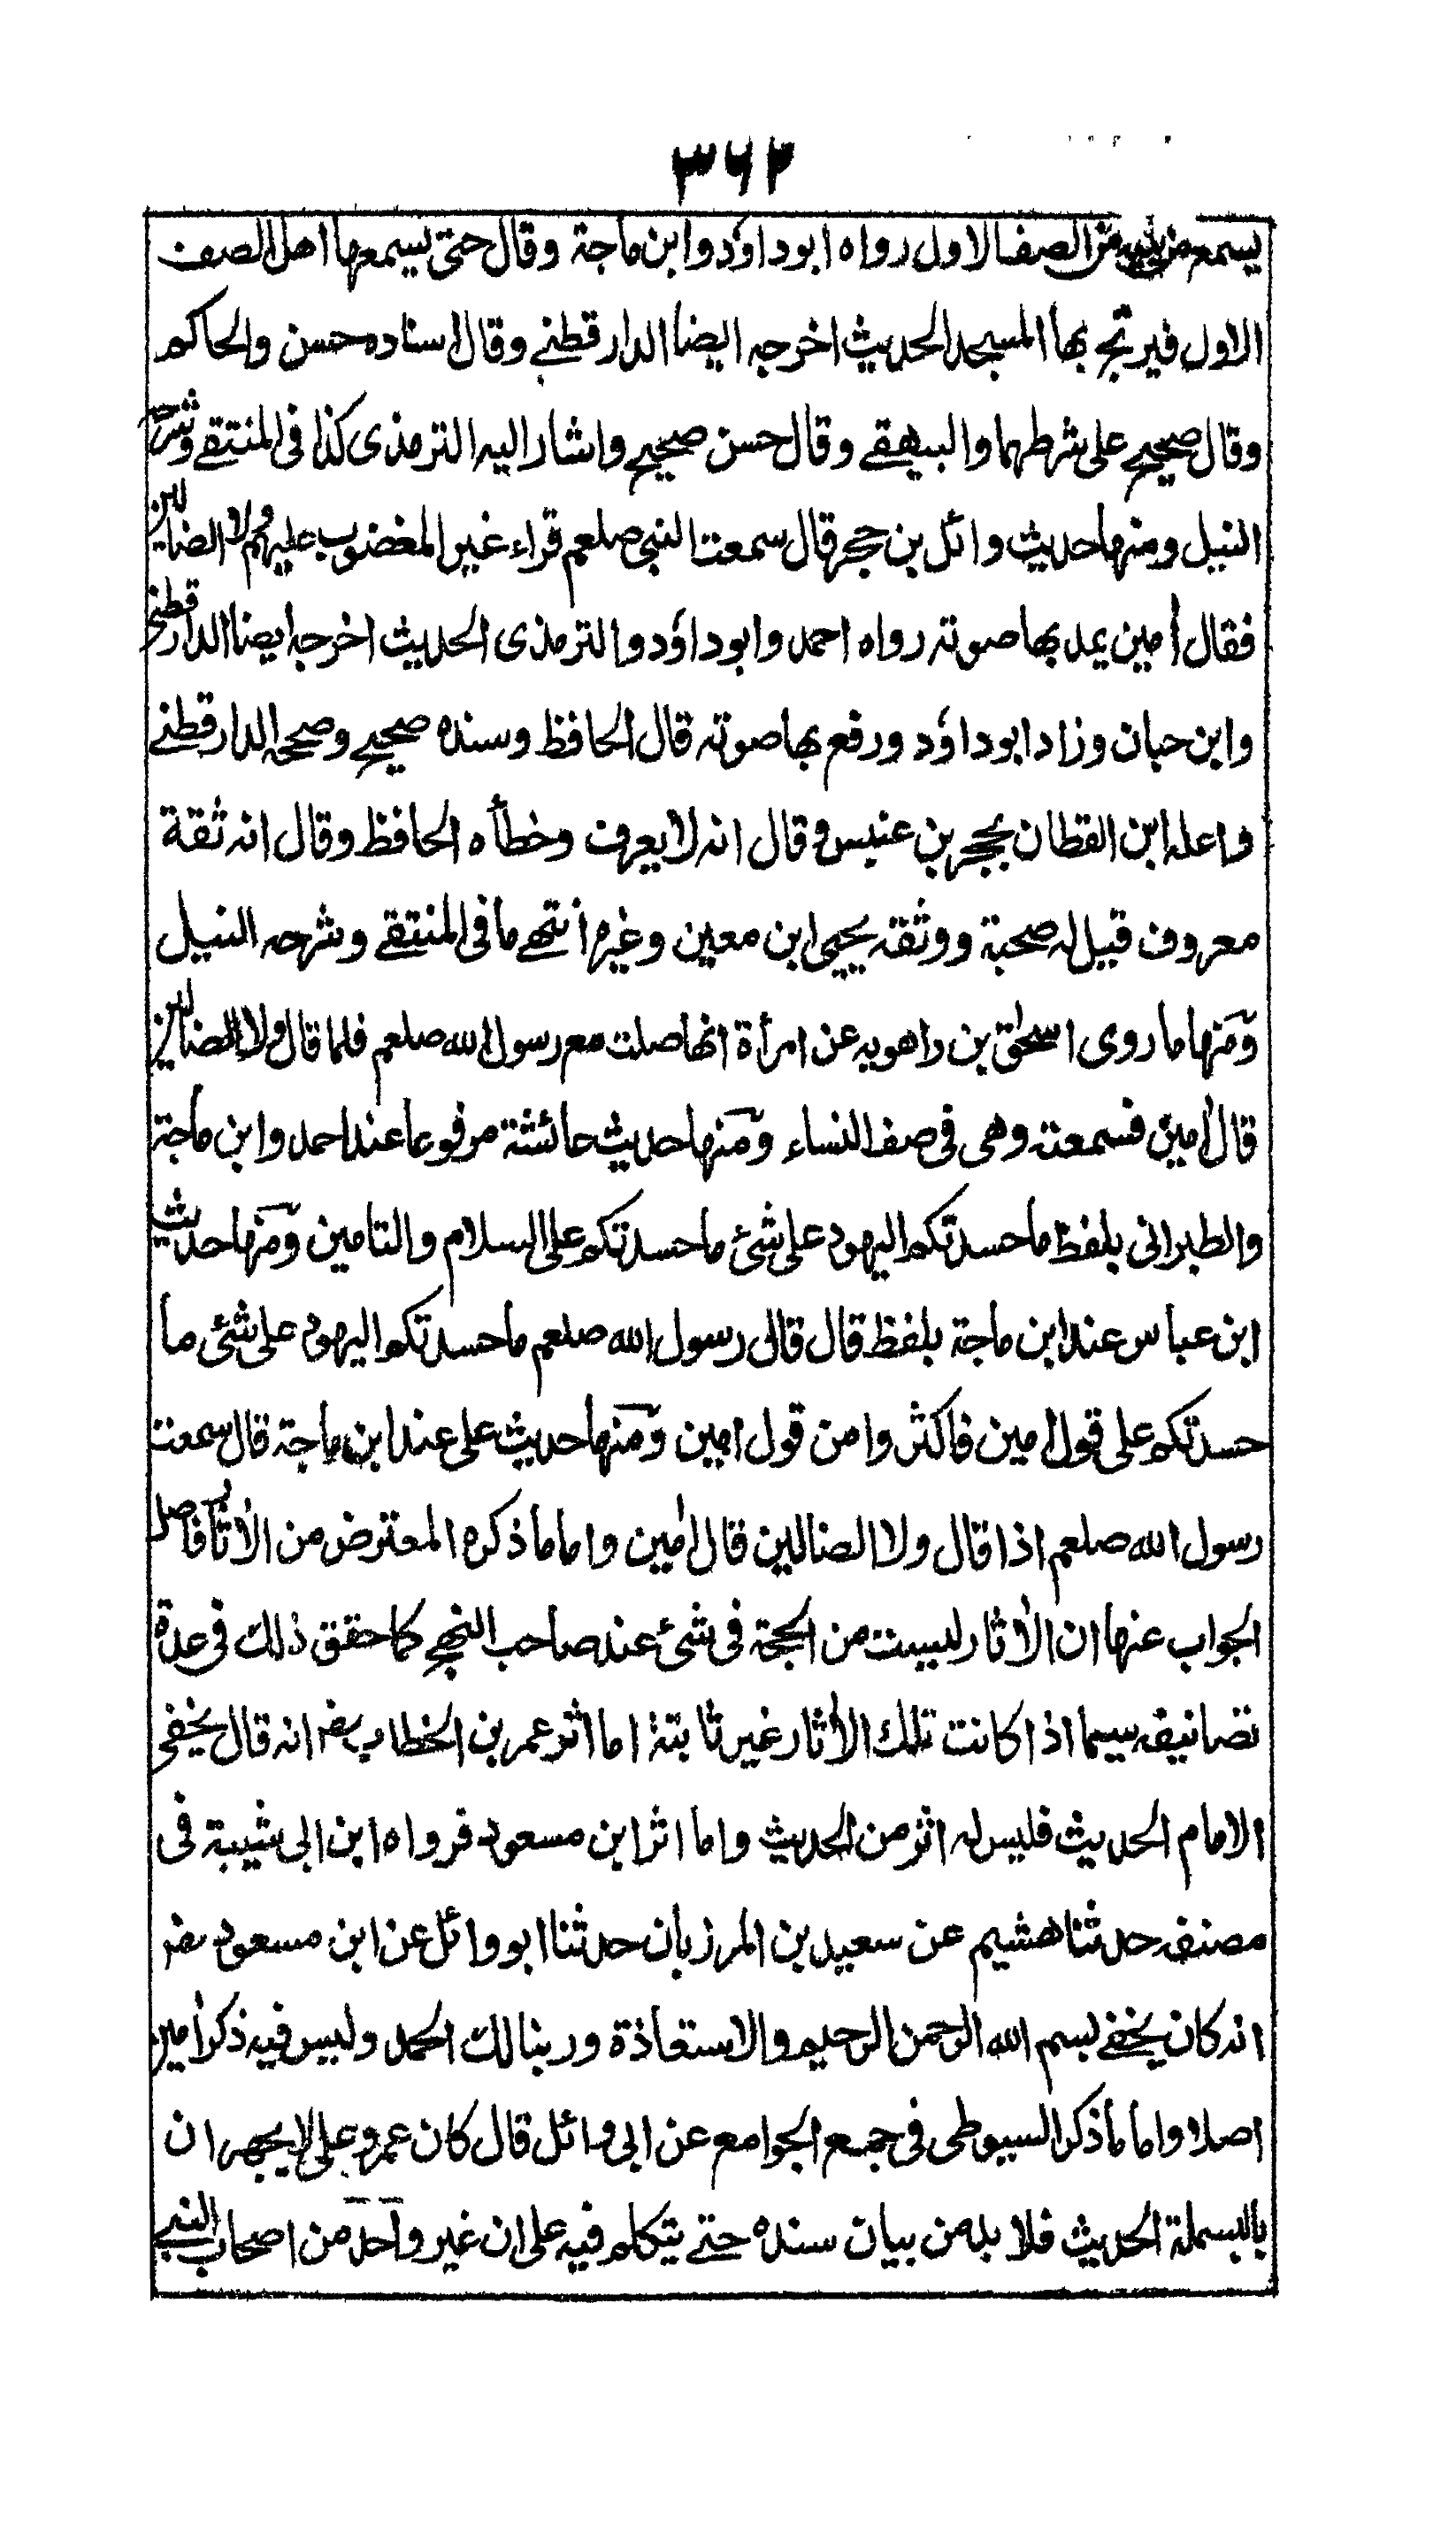 ٣٦٢
يسمع من يليه من الصف الاول رواه ابوداؤد وابن ماجة وقال حتى يسمعها اهل الصف
الاول فيرتج بها المسجد الحديث اخرجه ايضا الدارقطنے وقال اسناده حسن والحاكم
وقال صحيح على شرطهما والبيهقے وقال حسن صحيح واشار اليه الترمذى كذا فى المنتقے وشرحه
النيل ومنها حديث وائل بن حجر قال سمعت النبى صلعم قراء غير المغضوب عليهم ولا الضالين
فقال أمين يمد بها صوته رواه احمد وابوداؤد والترمذى الحديث اخرجه ايضا الدارقطنے
وابن حبان وزاد ابوداؤد ورفع بها صوته قال الحافظ وسنده صحيح وصححه الدارقطنے
واعله ابن القطان بحجر بن عنبس وقال انه لا يعرف وخطأه الحافظ وقال انه ثقة
معروف قيل له صحبة ووثقه يحيى ابن معين وغيره أنتهے ما فى المنتقے وشرحه النيل
ومنها ما روى اسحٰق بن راهويه عن امرأة انها صلت مع رسول الله صلعم فلما قال ولا الضالين
قال اٰمين فسمعته وهى فى صف النساء ومنها حديث عائشة مرفوعا عند احمد وابن ماجة
والطبرانى بلفظ ما حسدتكم اليهود على شئ ما حسدتكم على السلام والتامين ومنها حديث
ابن عباس عند ابن ماجة بلفظ قال قال رسول الله صلعم ما حسدتكم اليهود على شئ ما
حسدتكم على قول امين فاكثروا من قول امين ومنها حديث على عند ابن ماجة قال سمعت
رسول الله صلعم اذا قال ولا الضالين قال اٰمين واما ما ذكره المعترض من الاٰثار فاصل
الجواب عنها ان الاٰثار ليست من الحجة فى شئ عند صاحب النهج كما حقق ذلك فى عدة
تصانيفه سيما اذا كانت تلك الاٰثار غير ثابتة اما اثر عمر بن الخطاب رضـ انه قال يخفى
الامام الحديث فليس له اثر من الحديث واما اثر ابن مسعود فرواه ابن ابى شيبة فى
مصنفه حدثنا هشيم عن سعيد بن المرزبان حدثنا ابو وائل عن ابن مسعود رضـ
انه كان يخفے بسم الله الرحمن الرحيم والاستعاذة وربنا لك الحمد وليس فيه ذكر اٰمين
اصلا واما ما ذكر السيوطى فى جمع الجوامع عن ابى وائل قال كان عمر وعلى لا يجهران
بالبسملة الحديث فلا بد من بيان سنده حتے يتكلم فيه على ان غير واحد من اصحاب النبے